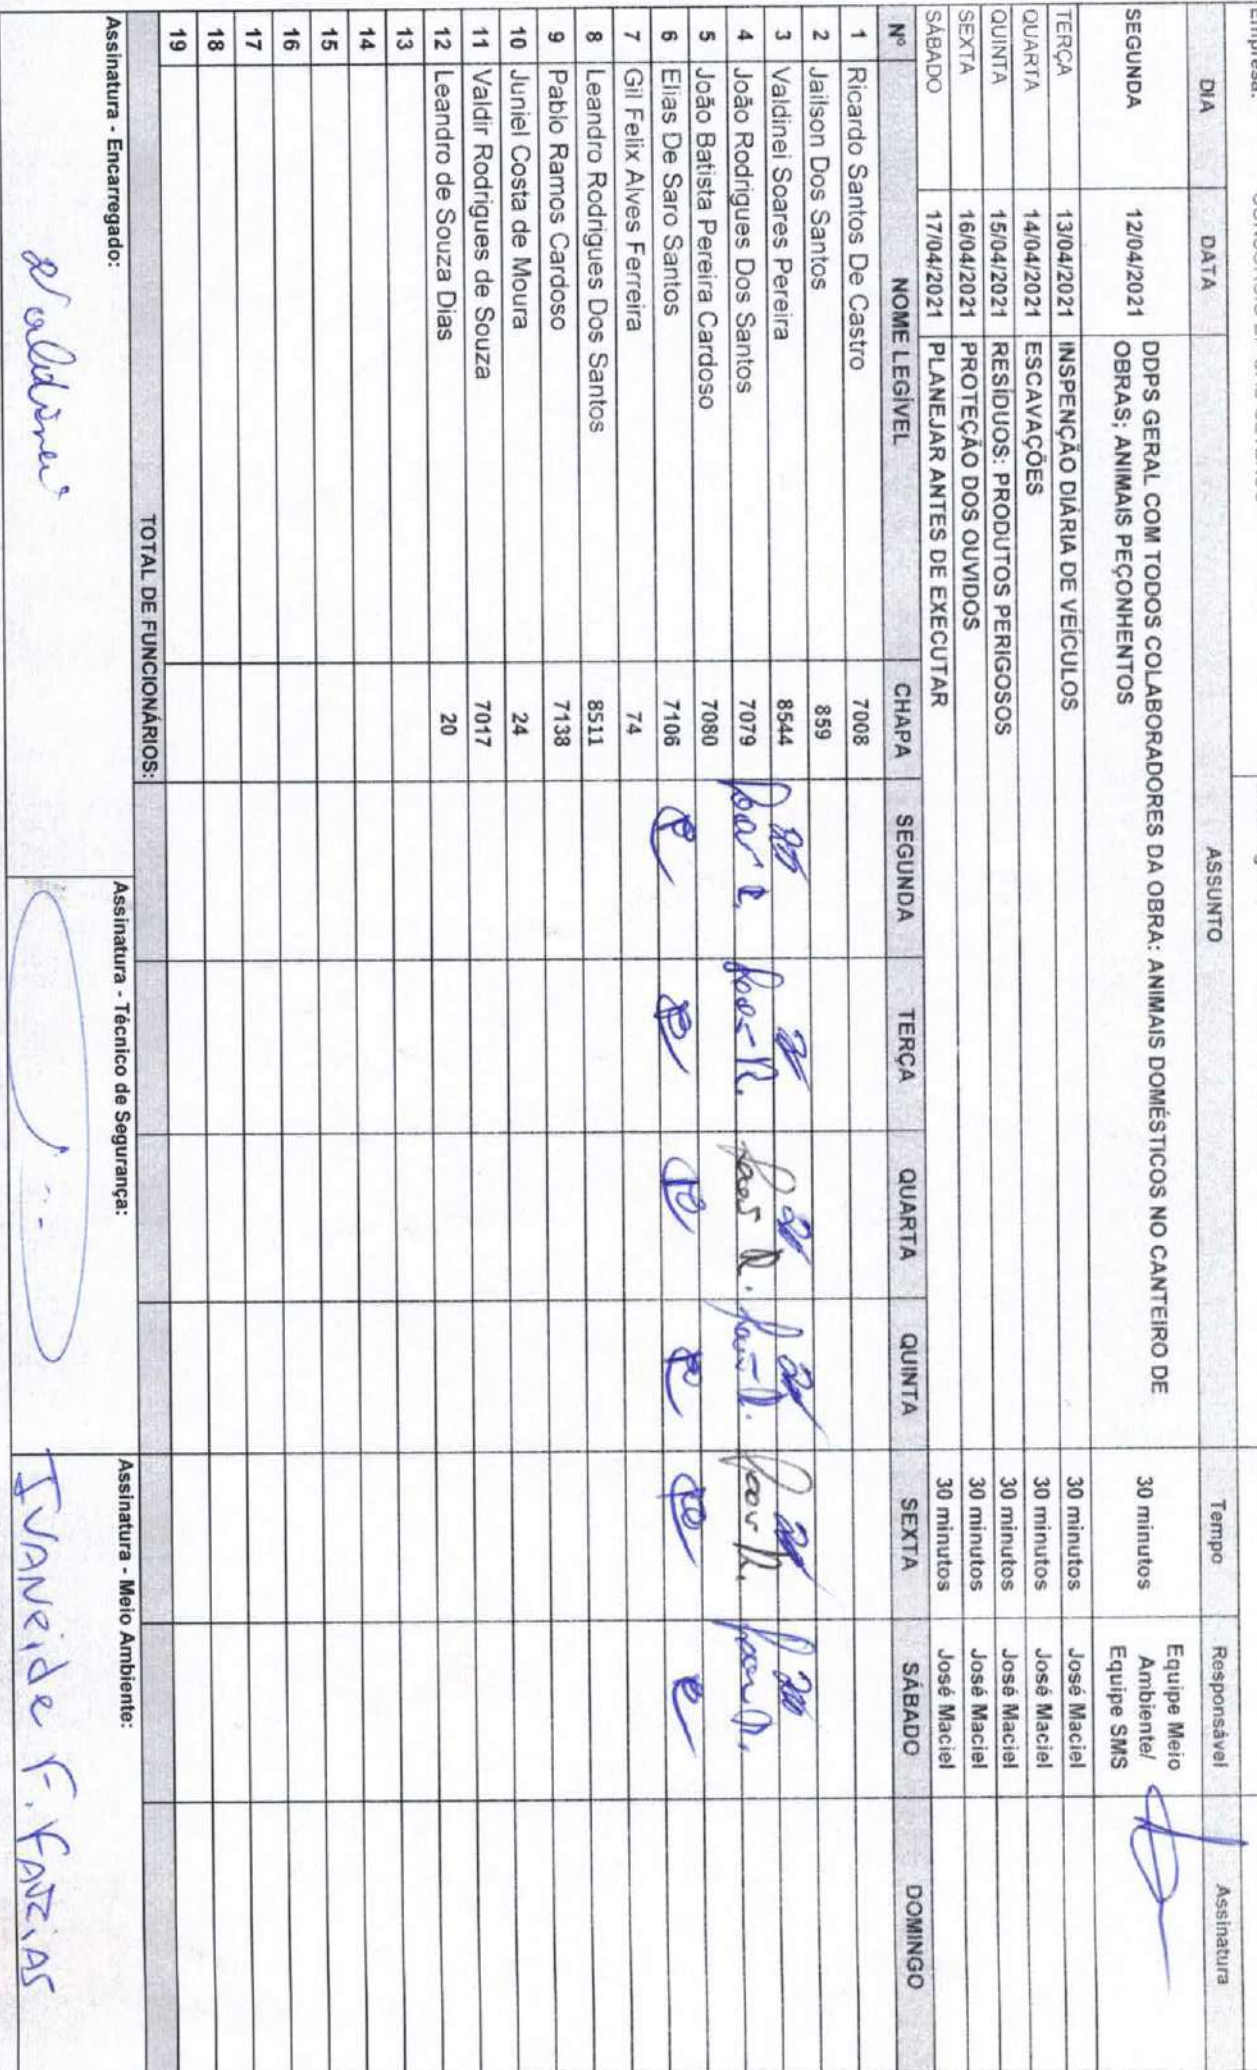 Empresa:
DIA DATA ASSUNTO Tempo Responsável Assinatura
SEGUNDA 12/04/2021 DDPS GERAL COM TODOS COLABORADORES DA OBRA: ANIMAIS DOMÉSTICOS NO CANTEIRO DE
OBRAS; ANIMAIS PEÇONHENTOS 30 minutos Equipe Meio
Ambiente/
Equipe SMS
TERÇA 13/04/2021 INSPENÇÃO DIÁRIA DE VEÍCULOS 30 minutos José Maciel
QUARTA 14/04/2021 ESCAVAÇÕES 30 minutos José Maciel
QUINTA 15/04/2021 RESÍDUOS: PRODUTOS PERIGOSOS 30 minutos José Maciel
SEXTA 16/04/2021 PROTEÇÃO DOS OUVIDOS 30 minutos José Maciel
SÁBADO 17/04/2021 PLANEJAR ANTES DE EXECUTAR 30 minutos José Maciel
Nº NOME LEGÍVEL CHAPA SEGUNDA TERÇA QUARTA QUINTA SEXTA SÁBADO DOMINGO
1 Ricardo Santos De Castro 7008
2 Jailson Dos Santos 859
3 Valdinei Soares Pereira 8544
4 João Rodrigues Dos Santos 7079
5 João Batista Pereira Cardoso 7080
6 Elias De Saro Santos 7106
7 Gil Felix Alves Ferreira 74
8 Leandro Rodrigues Dos Santos 8511
9 Pablo Ramos Cardoso 7138
10 Juniel Costa de Moura 24
11 Valdir Rodrigues de Souza 7017
12 Leandro de Souza Dias 20
13
14
15
16
17
18
19
TOTAL DE FUNCIONÁRIOS:
Assinatura - Encarregado: Assinatura - Técnico de Segurança: Assinatura - Meio Ambiente:
Valdinei IVANeide F. FARIAS